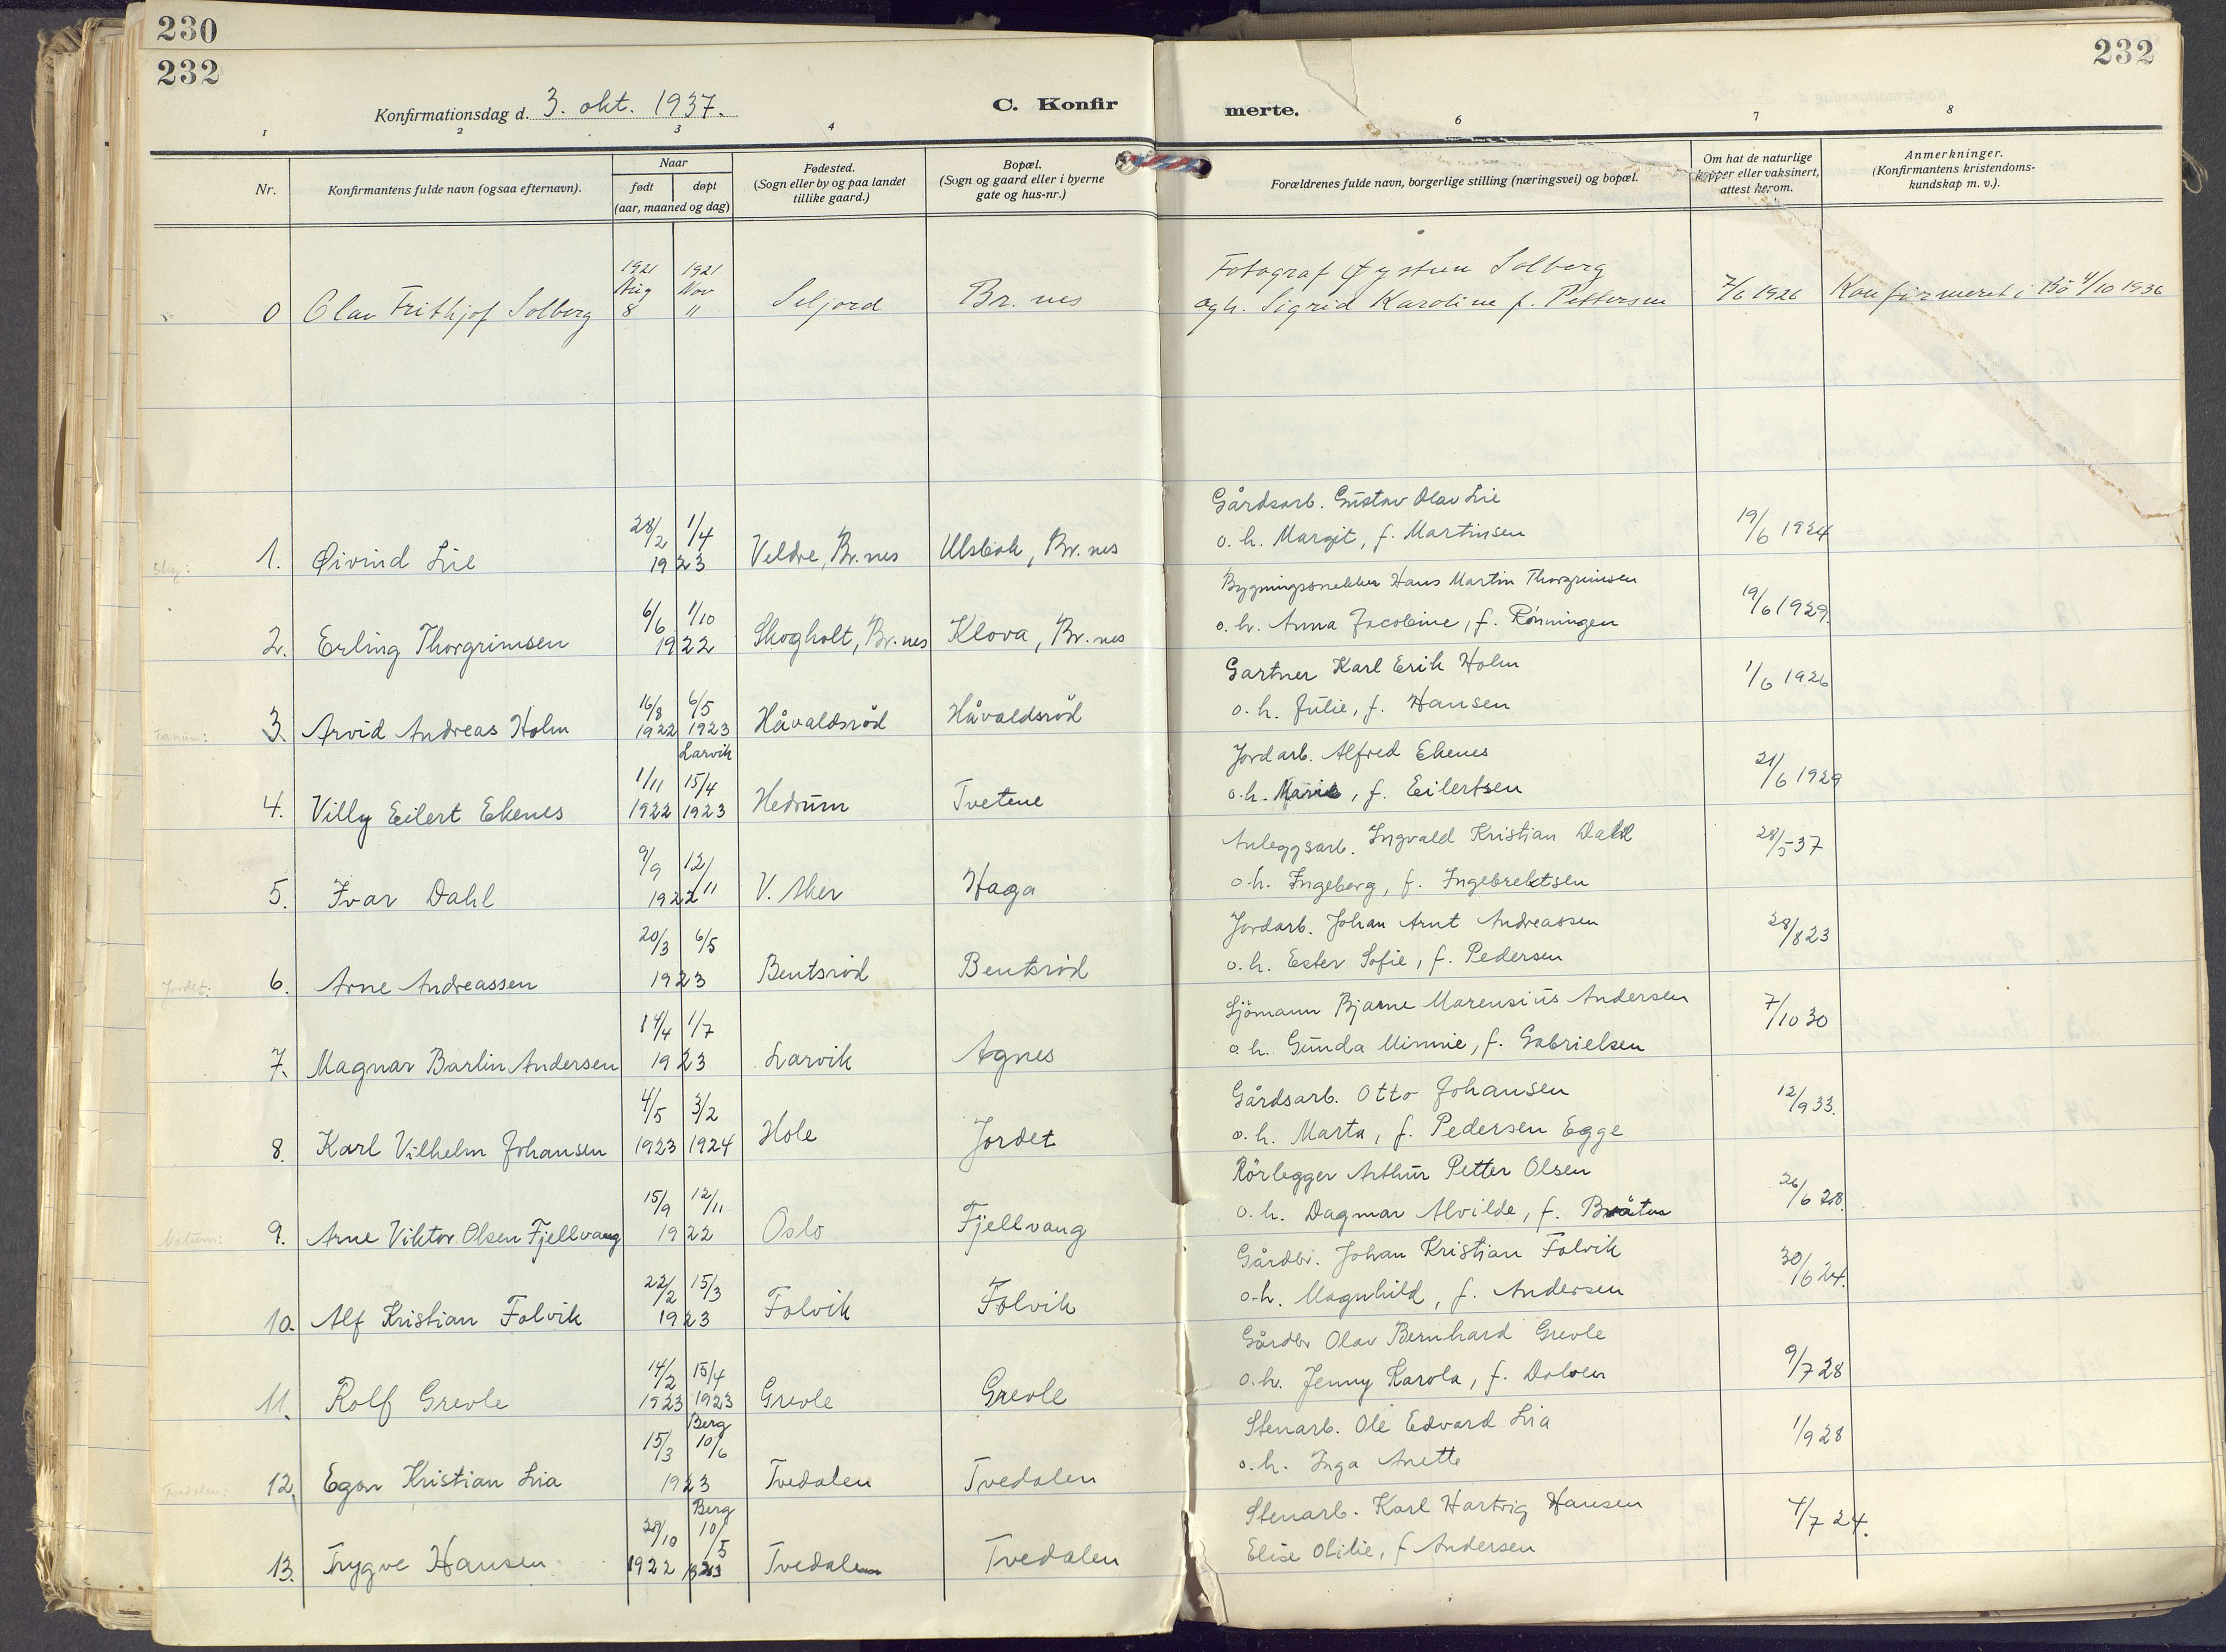 230
232
232
Konfirmationsdag d. 3. okt. 1937.
C. Konfir
merte.
1 2 3 4 6 7 8
Nr.
Konfirmantens fulde navn (ogsaa efternavn).
Naar
født døpt
(aar, maaned og dag)
Fødested.
(Sogn eller by og paa landet
tillike gaard.)
Bopæl.
(Sogn og gaard eller i byerne
gate og hus-nr.)
Forældrenes fulde navn, borgerlige stilling (næringsvei) og bopæl.
Om hat de naturlige
kopper eller vaksinert,
attest herom.
Anmerkninger.
(Konfirmantens kristendoms-
kundskap m. v.).
1921 1921 Fotograf Øystein Solberg
Aug Nov
0 Olav Frithjof Solberg 8 " Seljord Br. nes ogh. Sigrid Karoline f. Pettersen 7/6 1926 Konfirmeret i Bö 4/10 1936
28/2 1/4 Gårdsarb. Gustav Olav Lie
1. Øivind Lie 1923 Veldre, Br. nes Ulsbak, Br. nes o. h. Margit, f. Martinsen 19/6 1924
6/6 1/10 Bygningssnekker Hans Martin Thorgrimsen
2. Erling Thorgrimsen 1922 Skogholt, Br. nes Klova, Br. nes o. h. Anna Jacobine, f. Rönningen 19/6 1929.
16/8 6/5 Gartner Karl Erik Holm
3. Arvid Andreas Holm 1922 1923 Håvaldsröd Håvaldsröd o. h. Julie, f. Hansen 1/6 1926
Larvik
1/11 15/4 Jordarb. Alfred Ekenes
4. Villy Eilert Ekenes 1922 1923 Hedrum Tvetene o. h. Marie, f. Eilertsen 21/6 1929
9/9 12/11 Anleggsarb. Ingvald Kristian Dahl
5. Ivar Dahl 1922 V. Aker Haga o. h. Ingeborg, f. Ingebrektsen 28/5 37
20/3 6/5 Jordarb. Johan Arnt Andreassen
Jordet: 6. Arne Andreassen 1923 Bentsröd Bentsröd o. h. Ester Sofie, f. Pedersen 28/8 23
14/4 1/7 Sjömann Bjarne Marensius Andersen
7. Magnar Barlin Andersen 1923 Larvik Agnes o. h. Gunda Minnie, f. Gabrielsen 7/10 30
4/5 3/2 Gårdsarb. Otto Johansen
8. Karl Vilhelm Johansen 1923 1924 Hole Jordet o. h. Marta, f. Pedersen Egge 12/9 33.
15/9 12/11 Rörlegger Arthur Petter Olsen
9. Arne Viktor Olsen Fjellvang 1922 Oslo Fjellvang o. h. Dagmar Alvilde, f. Bråten 26/6 28.
22/2 15/3 Gårdbr. Johan Kristian Folvik
10. Alf Kristian Folvik 1923 Folvik Folvik o. h. Magnhild, f. Andersen 30/6 24.
14/2 15/4 Gårdbr Olav Bernhard Grevle
11. Rolf Grevle 1923 1923 Grevle Grevle o. h. Jenny Karola, f. Dolven 9/7 28
Berg
15/3 10/6 Stenarb. Ole Edvard Lia
Tvedalen: 12. Egon Kristian Lia 1923 Tvedalen Tvedalen o. h. Inga Anette 1/9 28
Berg
28/10 10/5 Stenarb. Karl Hartvig Hansen
13. Trygve Hansen 1922 1923 Tvedalen Tvedalen Elise Otilie, f Andersen 4/7 24.